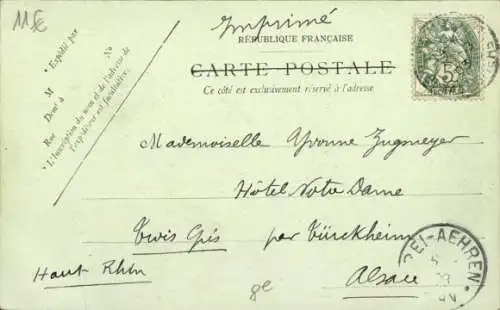 11 €
Imprimé
RÉPUBLIQUE FRANÇAISE
CARTE POSTALE
Ce côté est exclusivement réservé à l'adresse
* Expédié par
M
N°
Demt à
Rue
* L'inscription du nom et de l'adresse de
l'expéditeur est facultative.
5
Mademoiselle Yvonne Zugmeyer
Hôtel Notre Dame
Trois Epis par Türckheim
Haut Rhin
Alsace
EI-AEHREN
ge